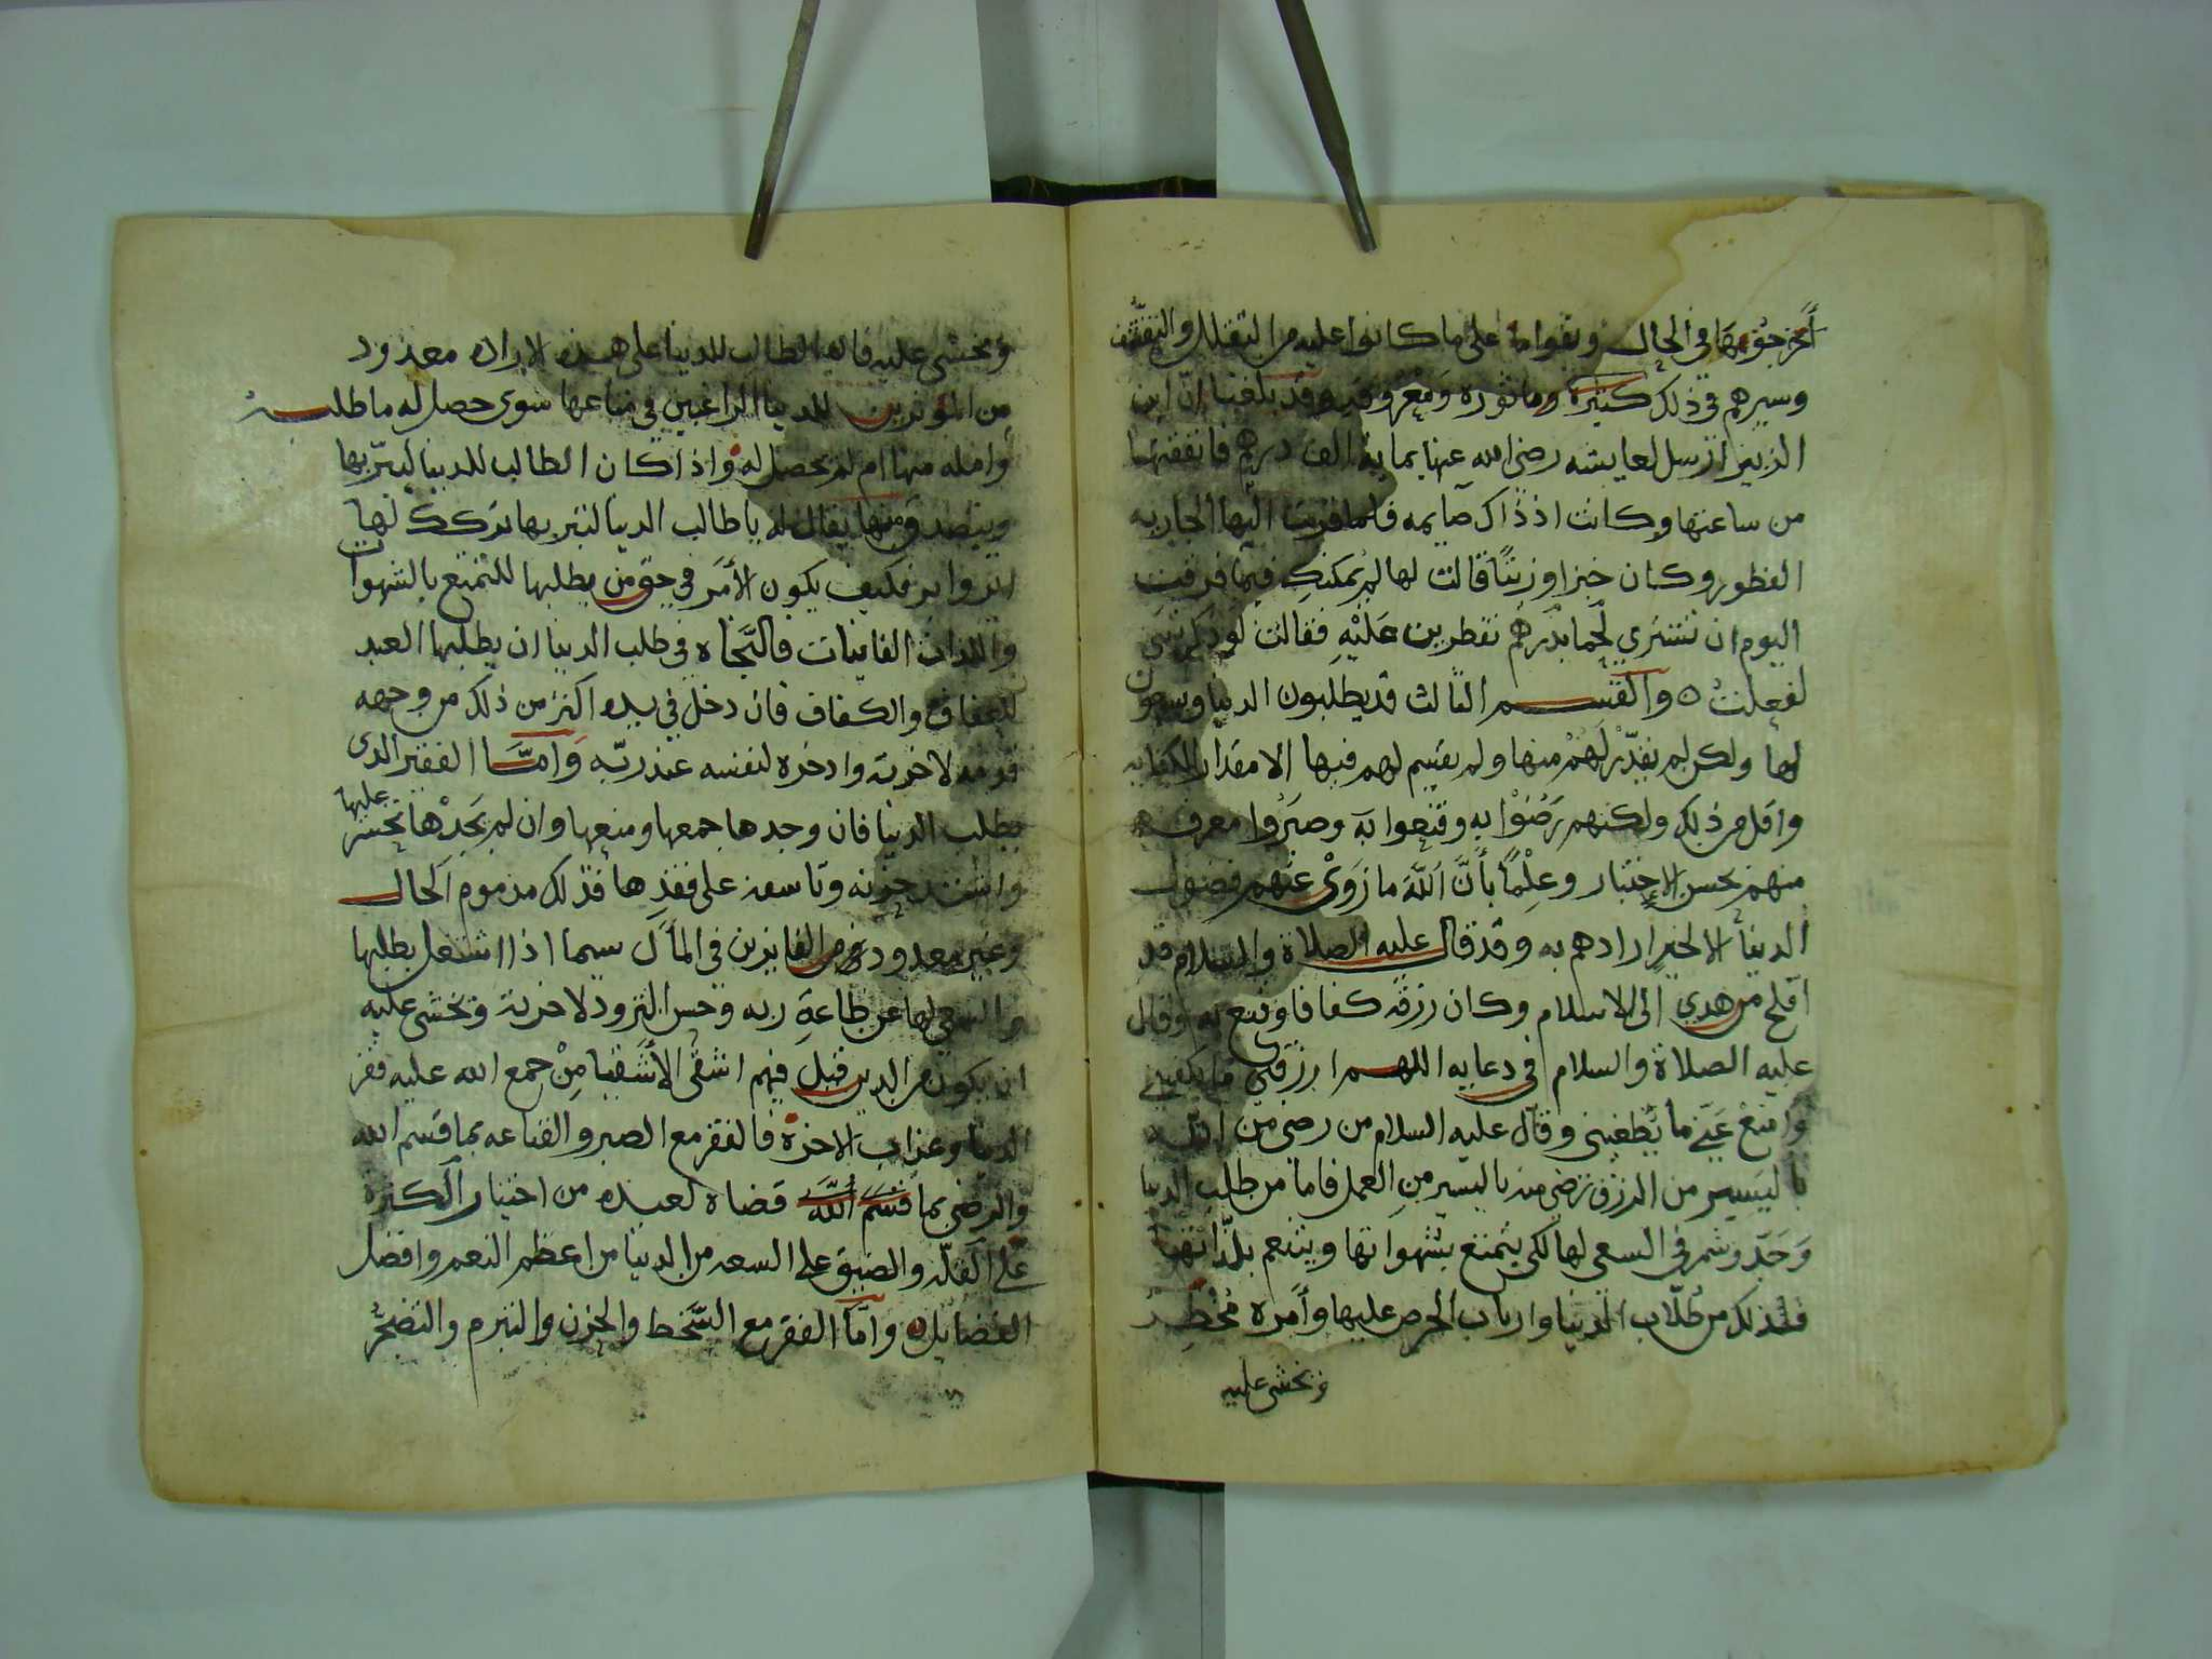 أخرجوها في الحال وبقوا على ما كانوا عليه من التقلل والتقشف
وسيرهم في ذلك كثيرة وماثوره ومعروفه وقد بلغنا ان ابن
الزبير ارسل لعايشه رضي الله عنها بماية الف درهم فانفقتها
من ساعتها وكانت اذ ذاك صايمه فلما قربت اليها الجاريه
الفطور وكان خبزا وزيتا قالت لها لم يمكنك فيما فرقت
اليوم ان تشتري لحما بدرهم تفطرين عليه فقالت لو ذكرتيني
لفعلت ه والقسم الثالث قد يطلبون الدنيا ويسعون
لها ولكن لم يقدر لهم منها ولم يقسم لهم فيها الا مقدار الكفايه
واقل من ذلك ولكنهم رضوا به وقنعوا به وصبروا معرفه
منهم بحسن الاختيار وعلما بأن الله ما زوى عنهم فضول
الدنيا الا لخير ارادهم به وقد قال عليه الصلاة والسلام قد
افلح من هدي الى الاسلام وكان رزقه كفافا وقنع به وقال
عليه الصلاة والسلام في دعايه اللهم ارزقني ما يكفيني
وامنع عني ما يطغيني وقال عليه السلام من رضي من الله
باليسير من الرزق رضي منه باليسير من العمل فاما من طلب الدنيا
وجد وشمر في السعي لها لكي يتمتع بشهواتها ويتنعم بلذاتها
فذلك من طلاب الدنيا وارباب الحرص عليها وأمره مخطر
ونخشى عليه
ونخشى عليه فاما الطالب للدنيا على هذه الاراده معدود
من المؤثرين للدنيا الراغبين في متاعها سوى حصل له ما طلبه
وامله منها ام لم يحصل له واذا كان الطالب للدنيا ليبر بها
ويتصدق منها يقال له يا طالب الدنيا لتبر بها تركك لها
ابر وابر فكيف يكون الأمر في حق من يطلبها للتمتع بالشهوات
واللذات الفانيات فالنجاة في طلب الدنيا ان يطلبها العبد
للعفاف والكفاف فان دخل في يده اكثر من ذلك من وجهه
قدمه لاخرته وادخره لنفسه عند ربه واما الفقير الذي
يطلب الدنيا فان وجدها جمعها ومنعها وان لم يجدها تحسر عليها
واشتد حزنه وتاسفه على فقدها فذلك مذموم الحال
وغير معدود من الفايزين في المآل سيما اذا اشتغل بطلبها
والسعي لها عن طاعة ربه وحسن التزود لاخرته ونخشى عليه
ان يكون من الذين قيل فيهم اشقى الأشقيا من جمع الله عليه فقر
الدنيا وعذاب الاخرة فالفقر مع الصبر والقناعه بما قسم الله
والرضى بما قسم الله قضاه لعبده من اختيار الكثرة
على القلة والضيق على السعه من الدنيا من اعظم النعم وافضل
الفضايل ه وأما الفقر مع السخط والحزن والتبرم والتضجر